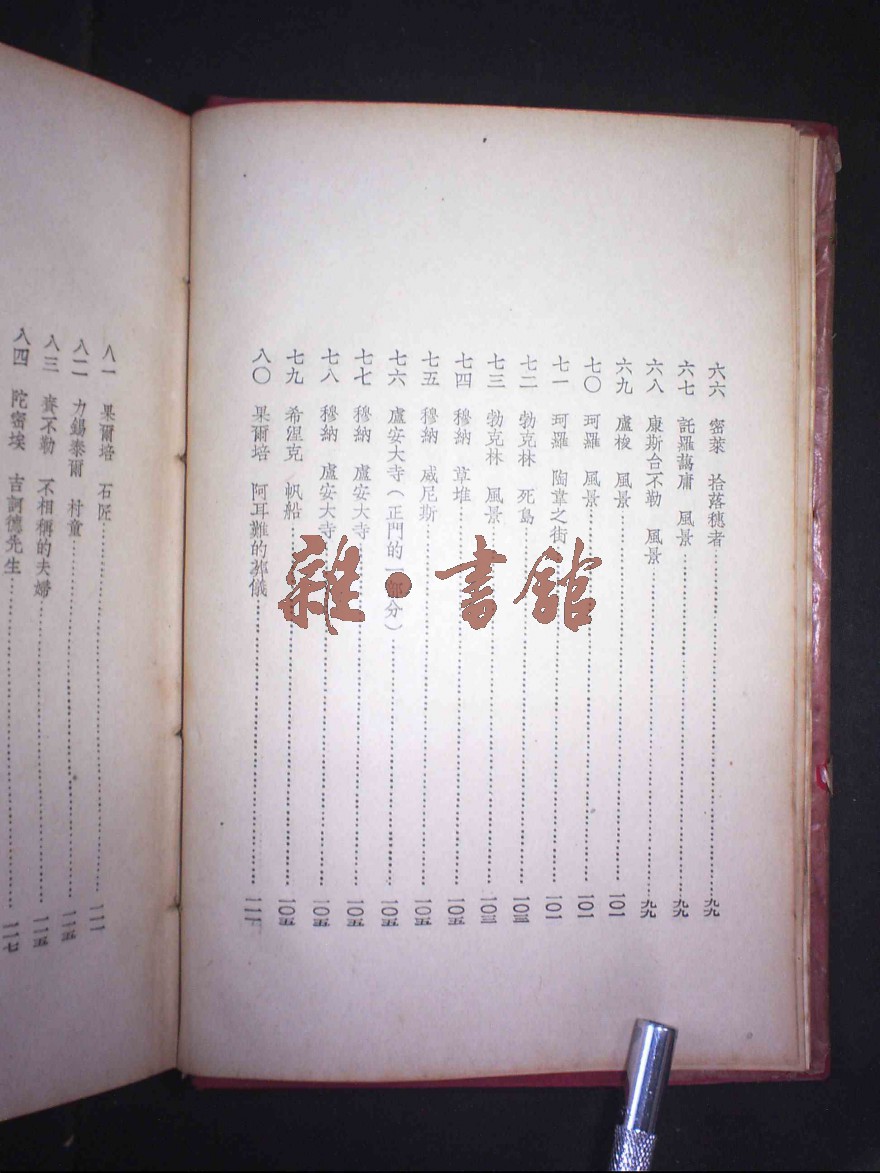 六六 密萊 拾落穗者……九九
六七 託羅蕩庸 風景……九九
六八 康斯台不勒 風景……九九
六九 盧梭 風景……一〇一
七〇 珂羅 風景……一〇一
七一 珂羅 陶韋之街……一〇一
七二 勃克林 死島……一〇三
七三 勃克林 風景……一〇三
七四 穆納 草堆……一〇五
七五 穆納 威尼斯……一〇五
七六 盧安大寺(正門的一部分)……一〇五
七七 穆納 盧安大寺……一〇五
七八 穆納 盧安大寺……一〇五
七九 希涅克 帆船……一〇五
八〇 果爾培 阿耳難的葬儀……一一一
八一 果爾培 石匠……一一一
八二 力錫泰爾 村童……一一五
八三 賚不勒 不相稱的夫婦……一一五
八四 陀密埃 吉訶德先生……一一七
雜·書館